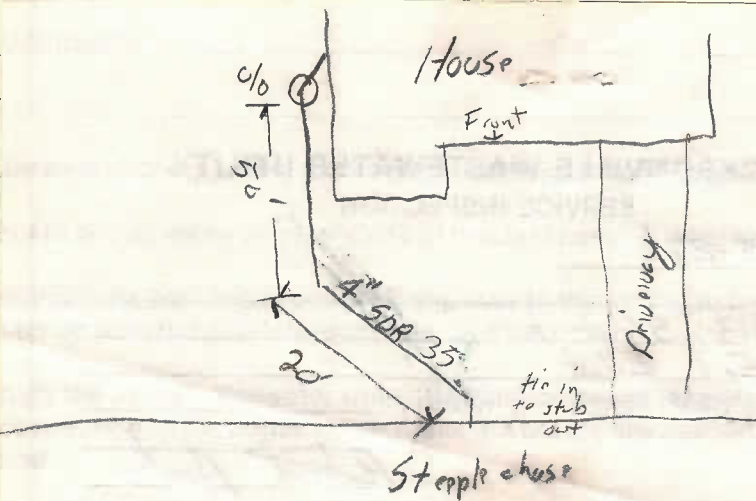 House
c/o
Front
50'
4" SDR 35
20'
Driveway
tie in
to stub
out
Steeple chase